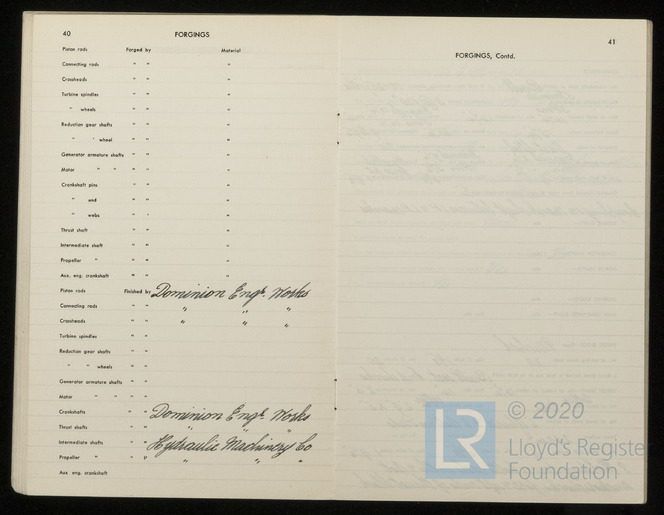 40 FORGINGS
Piston rods Forged by Material
Connecting rods " " "
Crossheads " " "
Turbine spindles " " "
" wheels " " "
Reduction gear shafts " " "
" " wheel " " "
Generator armature shafts " " "
Motor " " " " "
Crankshaft pins " " "
" and " " "
" webs " " "
Thrust shaft " " "
Intermediate shaft " " "
Propeller " " " "
Aux. eng. crankshaft " " "
Piston rods Finished by Dominion Engr. Works
Connecting rods " " " " "
Crossheads " " " " "
Turbine spindles " "
Reduction gear shafts " "
" " wheels " "
Generator armature shafts " "
Motor " " " "
Crankshafts " " Dominion Engr. Works
Thrust shafts " " " " "
Intermediate shafts " " Hydraulic Machinery Co
Propeller " " " " " "
Aux eng. crankshaft
41
FORGINGS, Contd.
LR © 2020
Lloyd's Register
Foundation